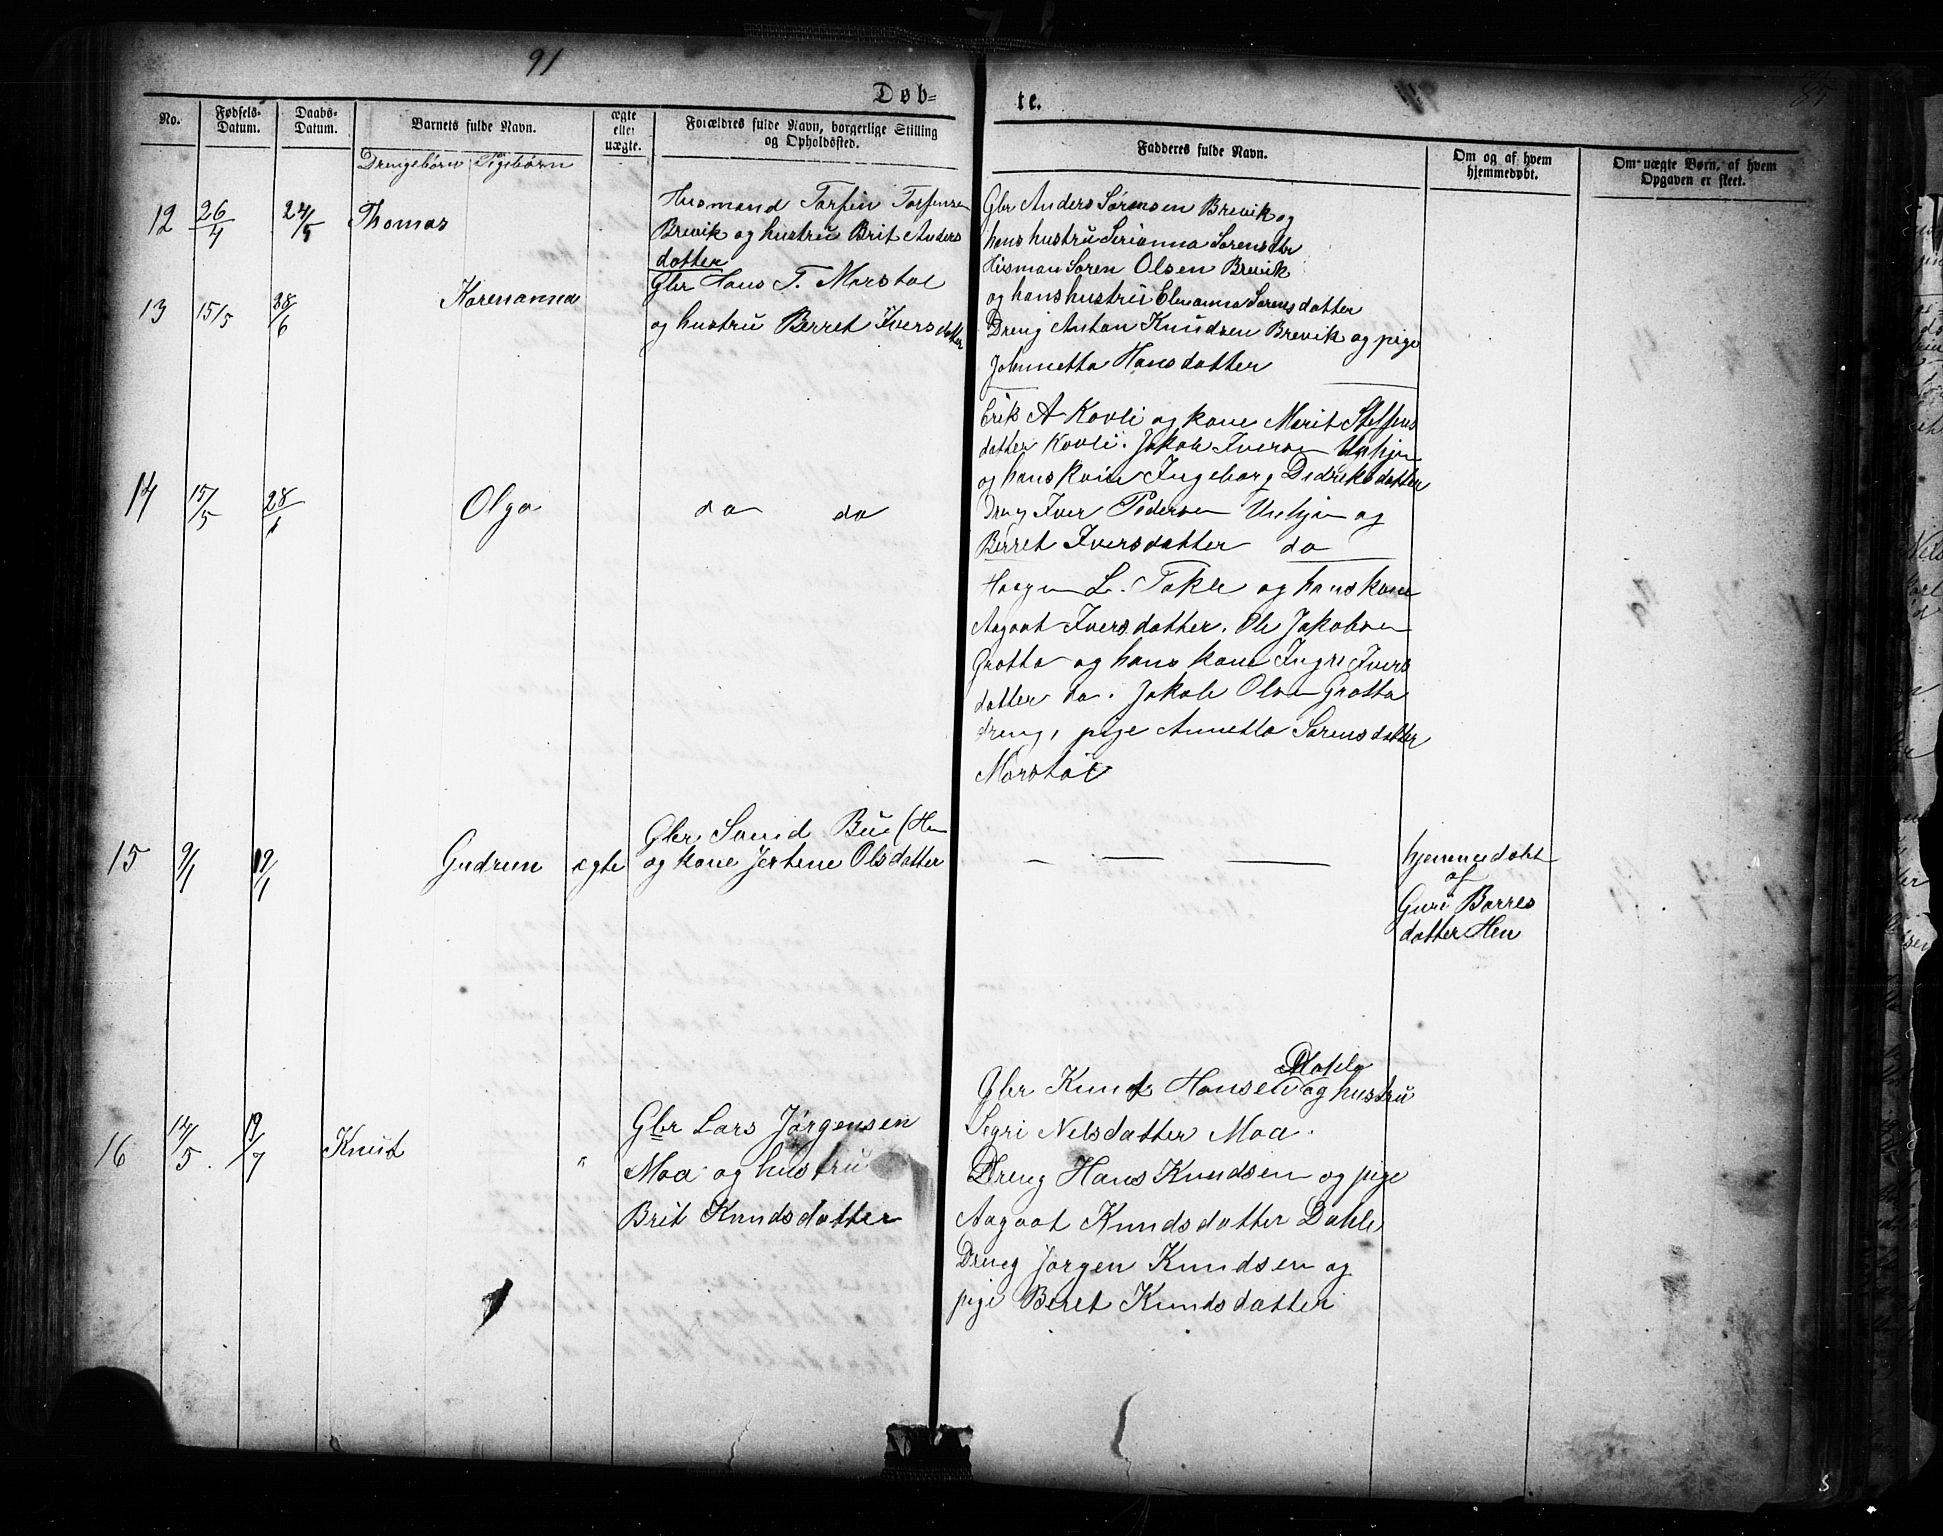 91
85
Døb-
te.
No.
Fødsels-
Datum.
Daabs-
Datum.
Barnets fulde Navn.
Drengebörn Pigebörn
ægte
eller
uægte.
Forældres fulde Navn, borgerlige Stilling
og Opholdssted.
Fadderes fulde Navn.
Om og af hvem
hjemmedøbt.
Om uægte Børn, af hvem
Opgaven er skeet.
12 26/4 24/5 Thomas
Husmand Torfin Torfinsen
Brevik og hustru Brit Anders
dotter
Gbr Anders Sörensen Brevik og
hans hustru Serianna Sorensdtr
Husman Soren Olsen Brevik
og hans hustru Elenanna Sorensdatter
Dreng Anton Knudsen Brevik og pige
Johnnetta Hansdatter
13 15/5 28/6 Karenanna
Gbr Hans T. Morstöl
og hustru Berret Iversdatter
Erik A Kovli og kone Marit Steffens
datter Kovli. Jakob Iversen Unhjem
og hans kone Ingeborg Dedriksdatter
Dreng Iver Pedersen Unhjem og
Berret Iversdatter do
14 15/5 28/6 Olga
do do
Haagen L. Tokle og hans kone
Aagoot Iversdatter. Ole Jakobsen
Grotta og hans kone Ingri Ivers
datter do. Jakob Olsen Grotta
dreng, pige Annetta Sorensdatter
Morstöl
15 9/1 19/1 Gudrun ægte
Gbr Svend Bue (Hen
og kone Jertine Olsdatter
— — —
hjemmedöbt
af
Guri Barres
datter Hen
16 14/5 19/7 Knut "
Gbr Lars Jörgensen
Moa og hustru
Brit Knudsdatter
Dahle
Gbr Knud Hansen og hustru
Sigri Nilsdatter Moa.
Dreng Hans Knudsen og pige
Aagoot Knudsdatter Dahle
Dreng Jorgen Knudsen og
pige Beret Knudsdatter